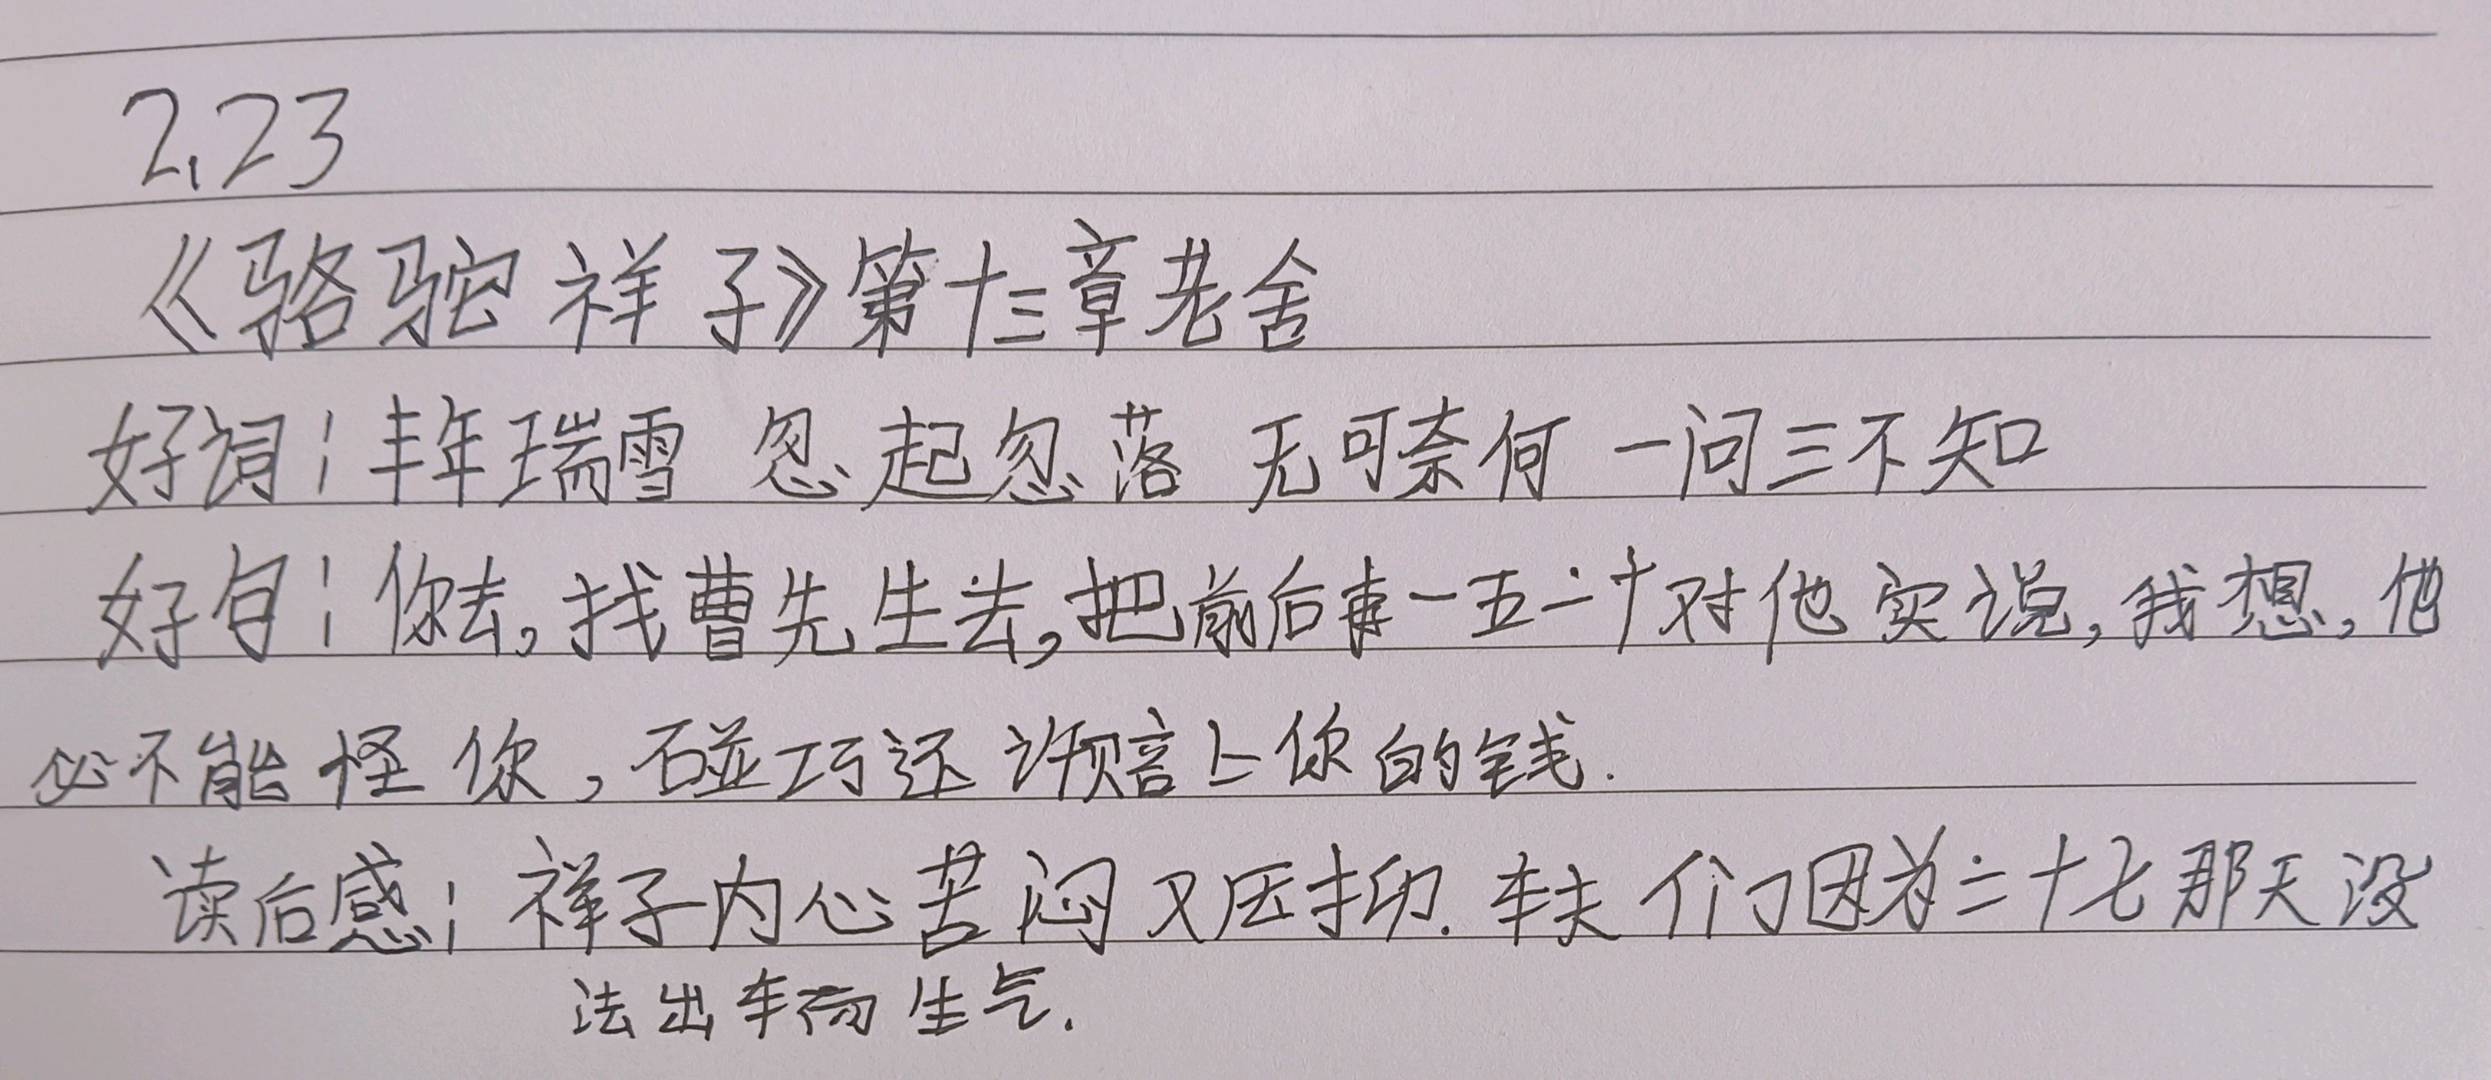 2.23
《骆驼祥子》第十三章老舍
好词:丰年瑞雪 忽起忽落 无可奈何 一问三不知
好句:你去,找曹先生去,把前后事一五一十对他实说,我想,他
必不能怪你,碰巧还许赔上你的钱.
读后感:祥子内心苦闷又压抑.车夫们因为二十七那天没
法出车而生气.